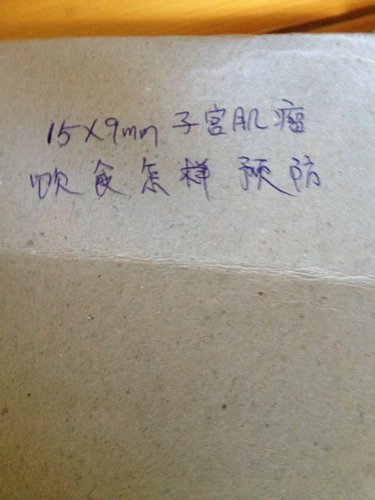 15X9mm子宫肌瘤
饮食怎样预防